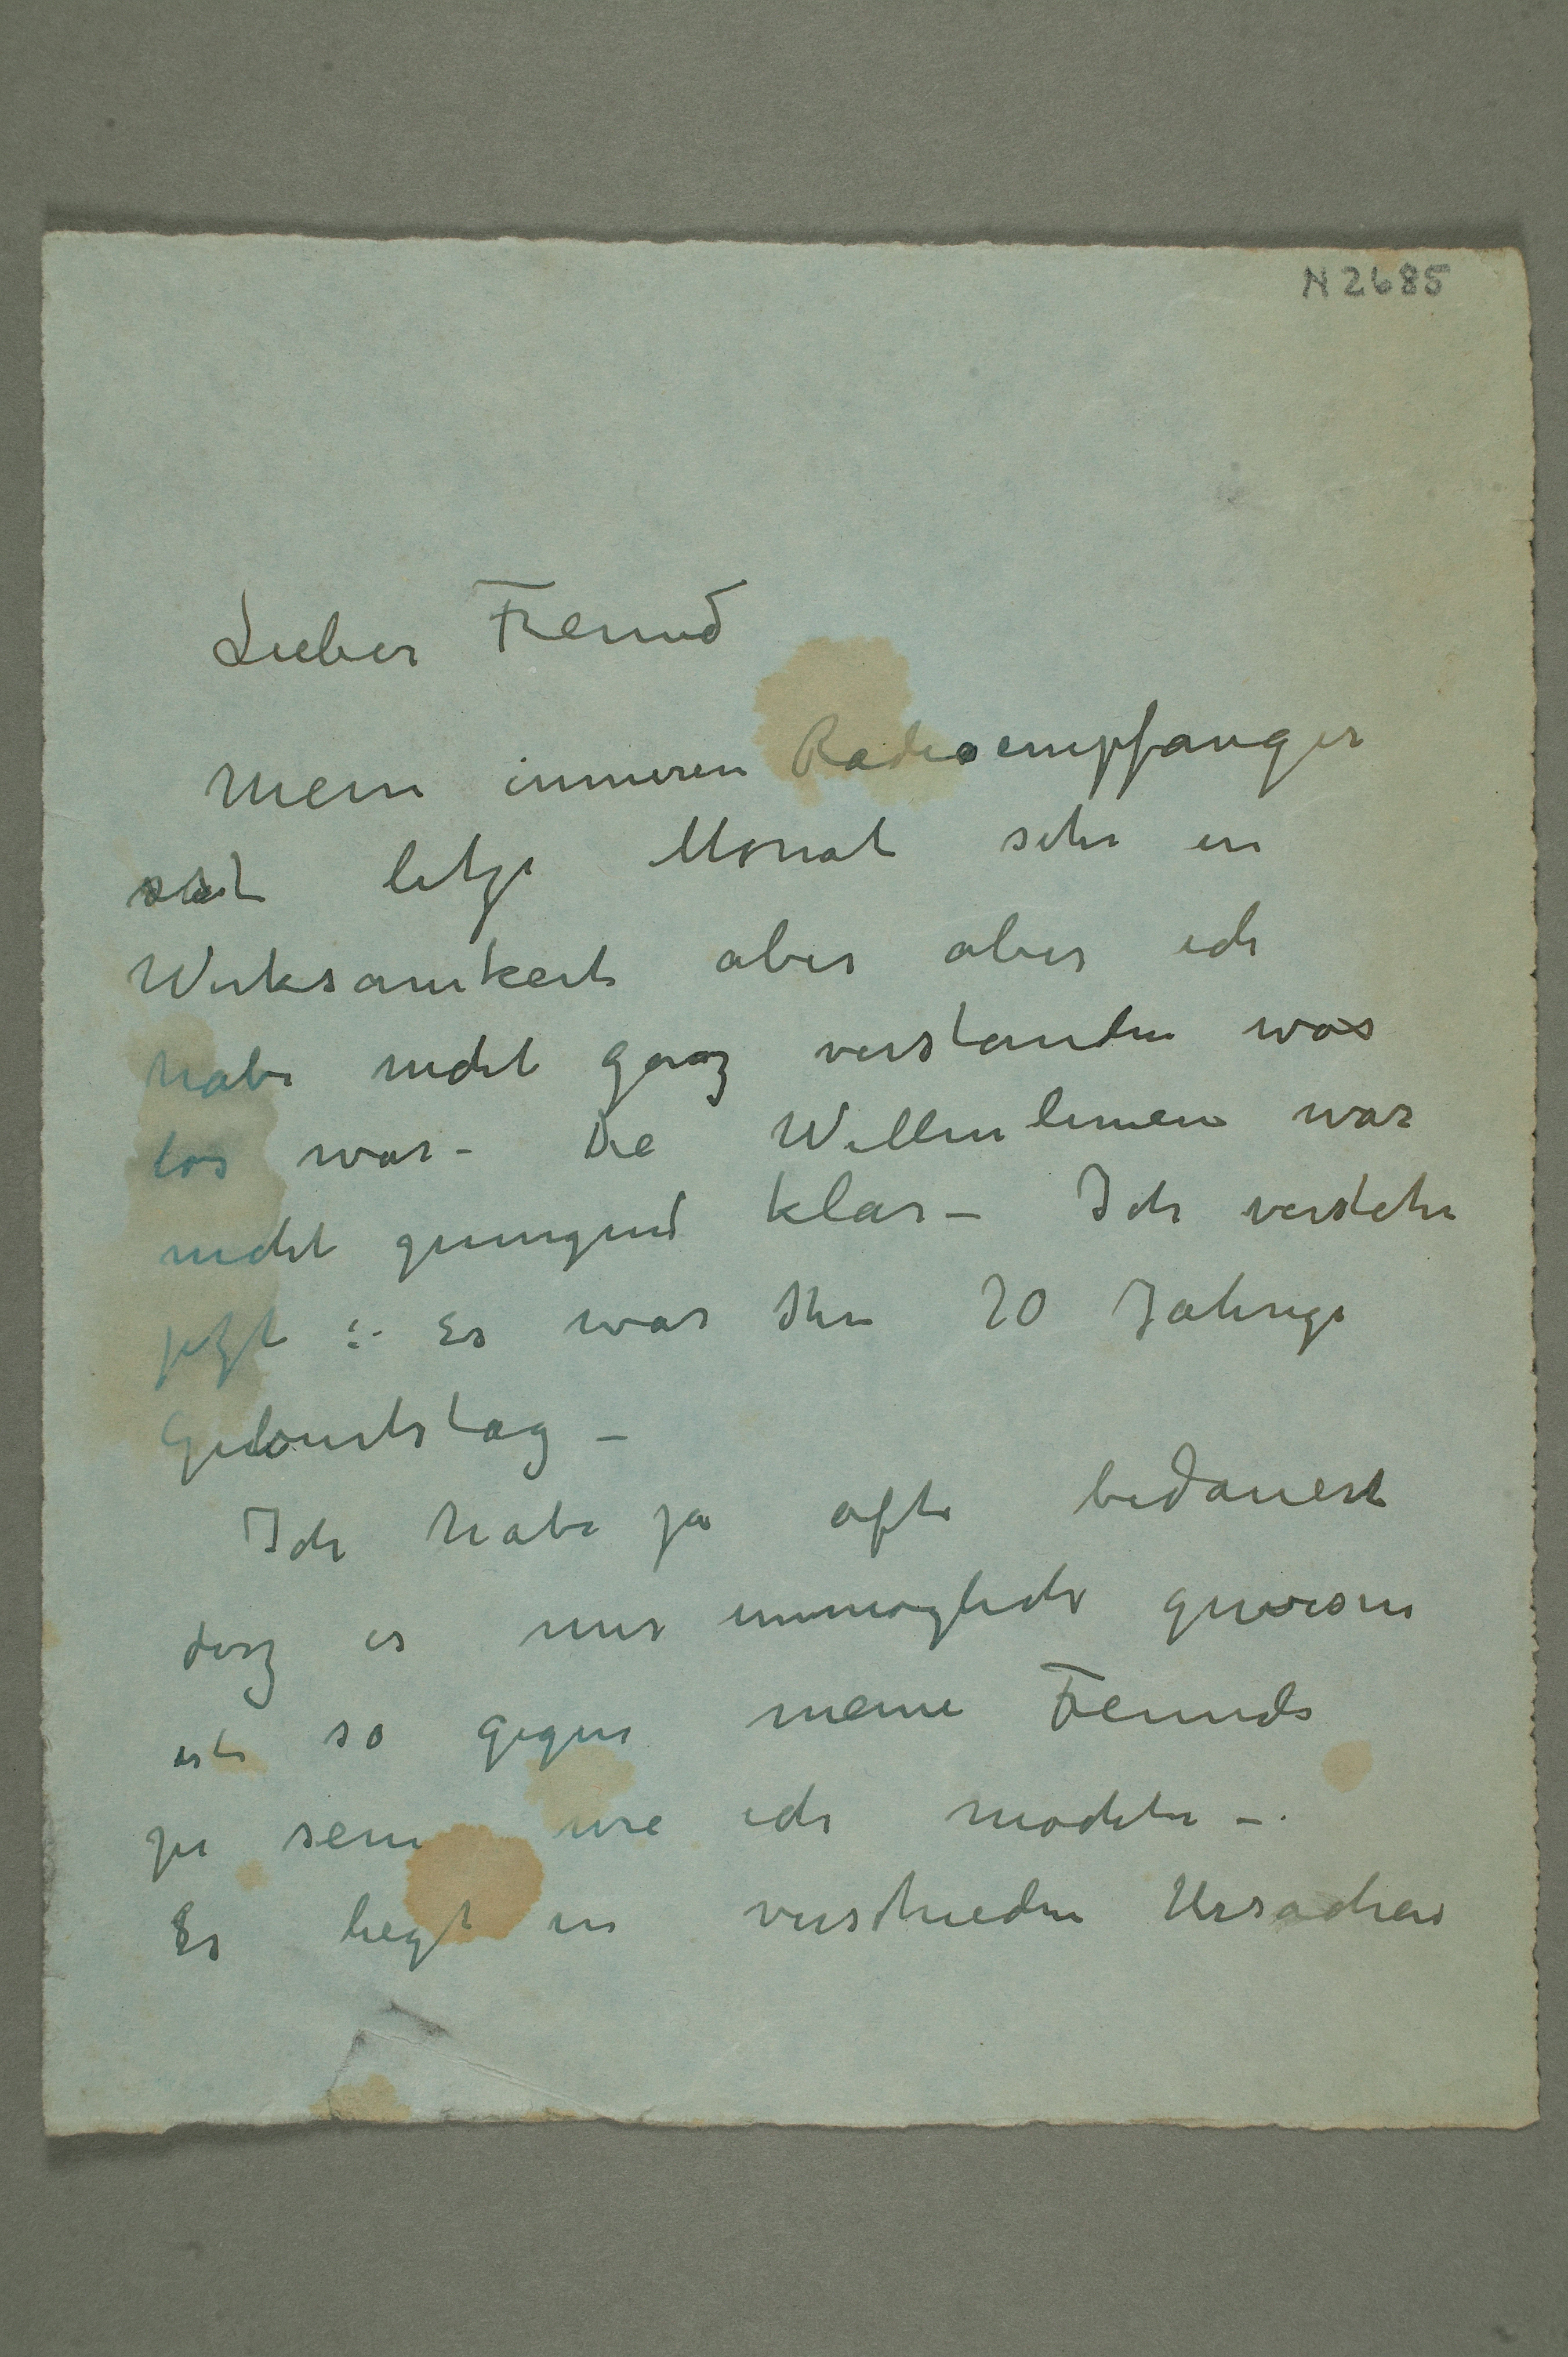 N 2685
Lieber Freund
Mein inneren Radioempfanger
letze Monat sehr in
Wirksamkeit aber aber ich
habe nicht ganz verstanden was
los war – Die Wellenlinien war
nicht genugend klar – Ich verstehe
jetzt :- Es war Ihre 70 Jahrige
Geburtstag –
Ich habe ja ofte bedauert
dasz es mir unmoglich gewesen
ist so gegen meine Freunde
zu sein wie ich mochte –.
Es liegt in verschieden Ursachen